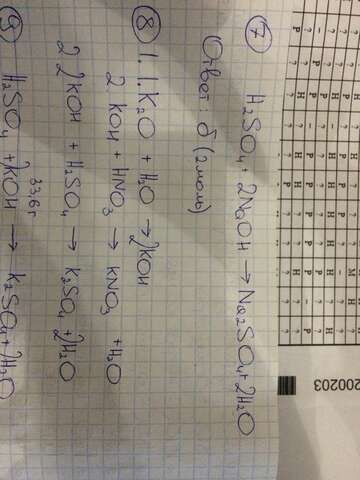 ⑦ H₂SO₄ + 2NaOH → Na₂SO₄ + 2H₂O
Ответ: б (2 моль)
⑧ 1. 1. K₂O + H₂O → 2KOH
2 KOH + HNO₃ → KNO₃ + H₂O
2 2KOH + H₂SO₄ → K₂SO₄ + 2H₂O
33,6 г
⑨ H₂SO₄ + 2KOH → K₂SO₄ + 2H₂O
2000203